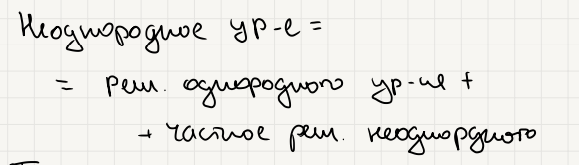 Неоднородное ур-е =
= реш. однородного ур-ие +
+ частное реш. неоднордного